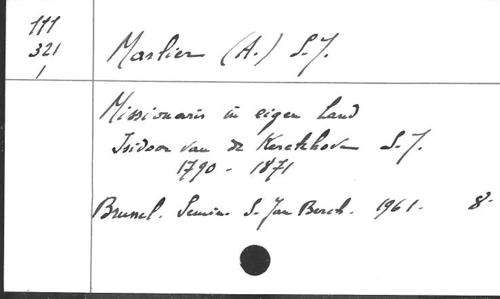 111
321
1
Marlier (A.) S.J.
Missionaris in eigen land
Isidoor van de Kerckhove S.J.
1790 - 1871
Brussel. Semin. S. Jan Berch. 1961. 8°